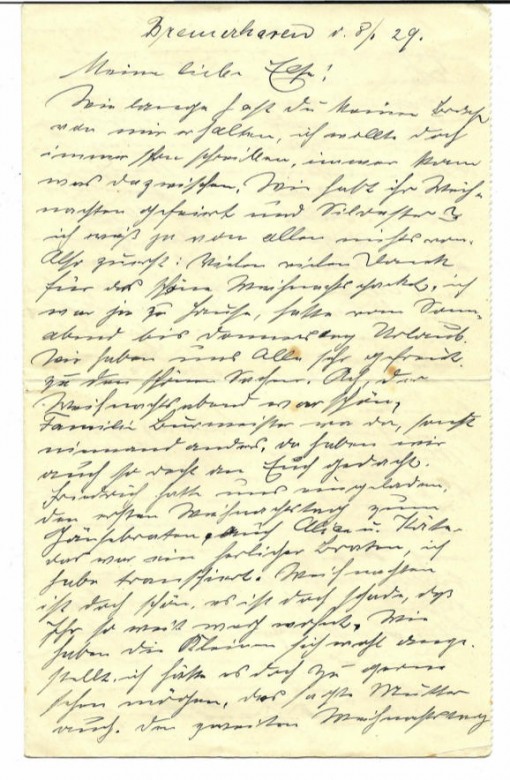 Bremerhaven d. 8/1 29.
Meine liebe Else!
Wie lange hast du keinen Brief
von mir erhalten, ich wollte doch
immer schon schreiben, immer kam
was dazwischen. Wie habt ihr Weih-
nachten gefeiert und Silvester?
ich weiß ja von allen nichts
Also zuerst: Vielen vielen Dank
für das schöne Weihnachtspacket, ich
war ja zu Hause, hatte vom Sonn-
abend bis Donnerstag Urlaub.
Wir haben uns Alle sehr gefreut
zu den schönen Sachen. Ach, der
Weihnachtsabend war schön,
Familie Burmeister war da, sonst
niemand anders, da haben wir
auch so recht an Euch gedacht.
Friedrich hatte uns eingeladen,
den ersten Weihnachtstag zum
Gänsebraten, auch u. Käte
das war ein herlicher Braten, ich
habe transchiert. Weihnachten
ist doch schön, es ist doch schade, daß
Ihr so weit weg wohnt. Wie
haben die Kleinen sich wohl ange-
stellt, ich hätte es doch zu gerne
sehen mögen, das sagte Mutter
auch. Den zweiten Weihnachtstag